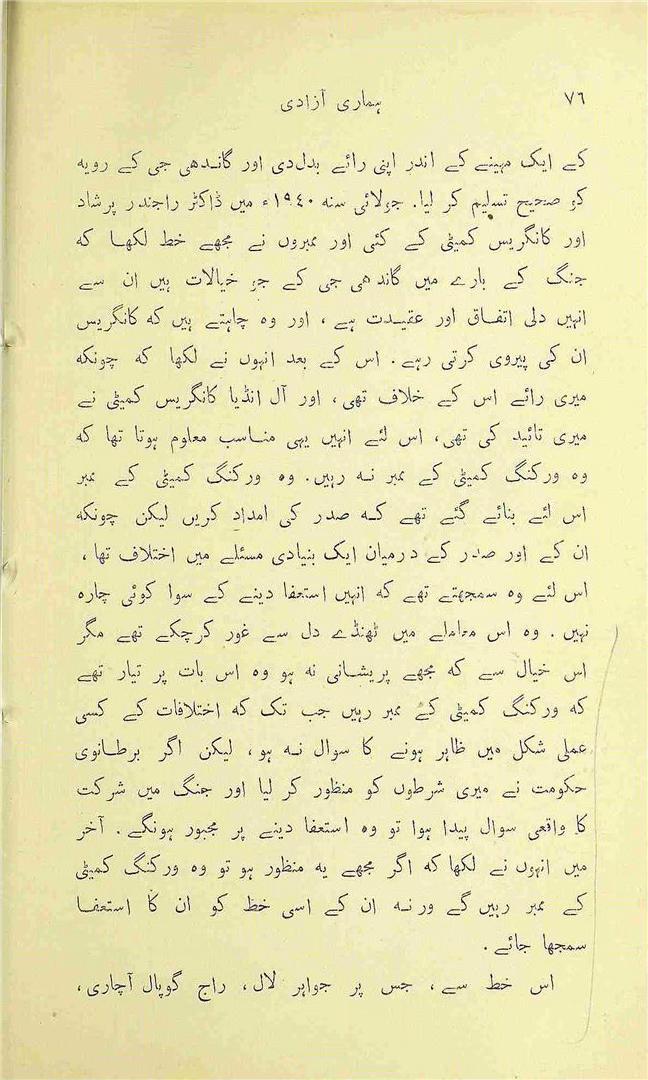 ۷٦ ہماری آزادی
کے ایک مہینے کے اندر اپنی رائے بدل دی اور گاندھی جی کے رویہ
کو صحیح تسلیم کر لیا۔ جولائی سنہ ۱۹۴۰ء میں ڈاکٹر راجندر پرشاد
اور کانگریس کمیٹی کے کئی اور ممبروں نے مجھے خط لکھا کہ
جنگ کے بارے میں گاندھی جی کے جو خیالات ہیں ان سے
انہیں دلی اتفاق اور عقیدت ہے، اور وہ چاہتے ہیں کہ کانگریس
ان کی پیروی کرتی رہے۔ اس کے بعد انہوں نے لکھا کہ چونکہ
میری رائے اس کے خلاف تھی، اور آل انڈیا کانگریس کمیٹی نے
میری تائید کی تھی، اس لئے انہیں یہی مناسب معلوم ہوتا تھا کہ
وہ ورکنگ کمیٹی کے ممبر نہ رہیں۔ وہ ورکنگ کمیٹی کے ممبر
اس لئے بنائے گئے تھے کہ صدر کی امداد کریں لیکن چونکہ
ان کے اور صدر کے درمیان ایک بنیادی مسئلے میں اختلاف تھا،
اس لئے وہ سمجھتے تھے کہ انہیں استعفا دینے کے سوا کوئی چارہ
نہیں۔ وہ اس معاملے میں ٹھنڈے دل سے غور کرچکے تھے مگر
اس خیال سے کہ مجھے پریشانی نہ ہو وہ اس بات پر تیار تھے
کہ ورکنگ کمیٹی کے ممبر رہیں جب تک کہ اختلافات کے کسی
عملی شکل میں ظاہر ہونے کا سوال نہ ہو، لیکن اگر برطانوی
حکومت نے میری شرطوں کو منظور کر لیا اور جنگ میں شرکت
کا واقعی سوال پیدا ہوا تو وہ استعفا دینے پر مجبور ہونگے۔ آخر
میں انہوں نے لکھا کہ اگر مجھے یہ منظور ہو تو وہ ورکنگ کمیٹی
کے ممبر رہیں گے ورنہ ان کے اسی خط کو ان کا استعفا
سمجھا جائے۔
اس خط سے، جس پر جواہر لال، راج گوپال آچاری،